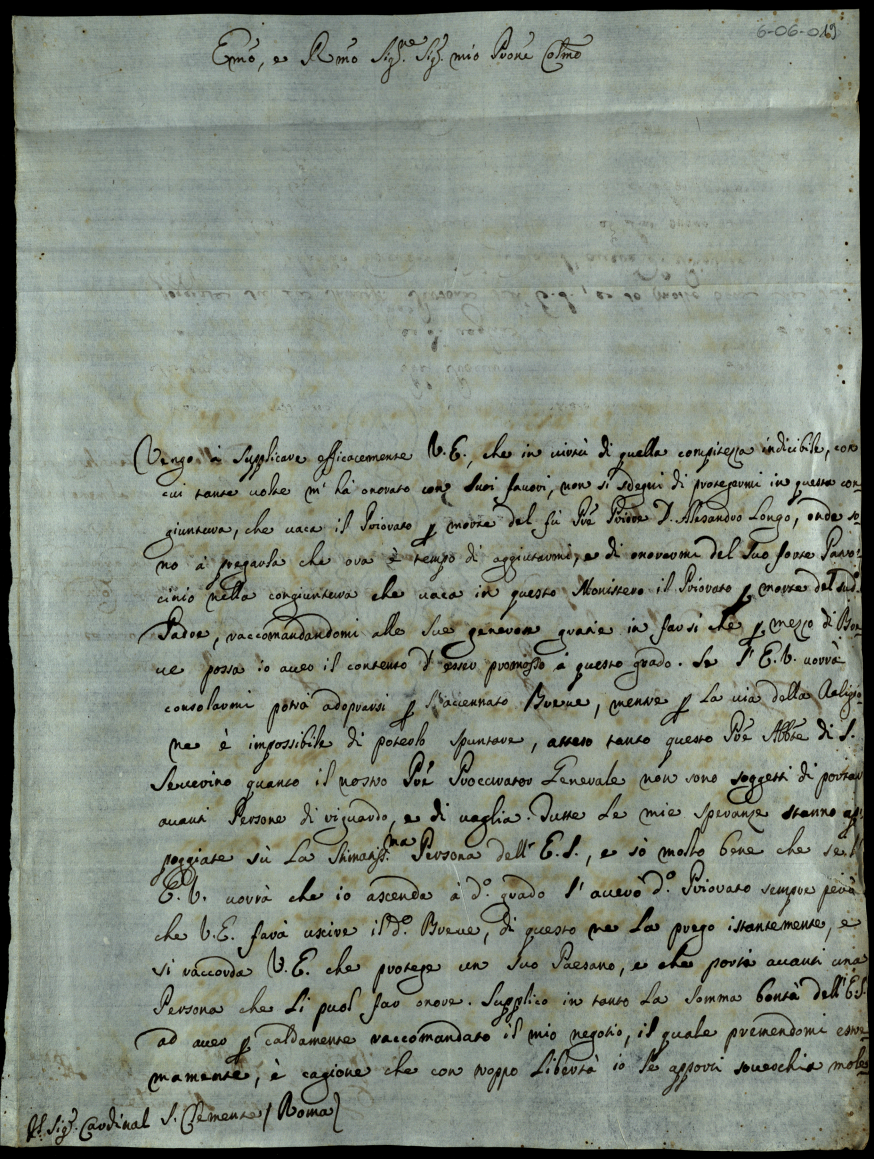 6-06-019
Emo, e Rmo Sigre. Sig. mio Prone Colmo
Vengo à supplicare efficacemente V.E., che in virtù di quella compitezza indicibile, con
cui tante volte m'hà onorato con suoi favori, non si sdegni di protegermi in questa con-
giuntura, che vaca il Priorato p morte del fù Pre Priore D. Alesandro Longo, onde so-
no à pregarla che ora è tempo di aggiutarmi, e di onorarmi del suo forte Patro-
cinio nella congiuntura che vaca in questo Monistero il Priorato p morte del sudo.
Padre, raccomandandomi alle sue generose grazie in far si che p mezzo di Bre-
ve possa io aver il contento d'esser promosso à questo grado. Se l'E.V. vorrà
consolarmi potrà adoprarsi p l'accennato Breve, mentre p la via della Religio-
ne è impossibile di poterlo spuntare, atteso tanto questo Pre Abbte di S.
Severino quanto il nostro Pre Proccurator Generale non sono soggetti di portar
avanti Persone di riguardo, e di vaglia. Tutte le mie speranze stanno ap-
poggiate sù la Stimatissma Persona dell'E.S., e sò molto bene che se l'
E.V. vorrà che io ascenda à do. grado l'averò do. Priorato sempre però
che V.E. farà uscire il do. Breve, di questo ne la prego istantemente, e
si raccorda V.E. che protege un suo Paesano, e che porta avanti una
Persona che li puol far onore. Supplico in tanto la somma bontà dell'E.S.
ad aver p caldamente raccomandato il mio negotio, il quale premendomi estre-
mamente, è cagione che con troppo libertà io le apporti soverchia moles-
Sig. Cardinal S. Clemente (Roma)